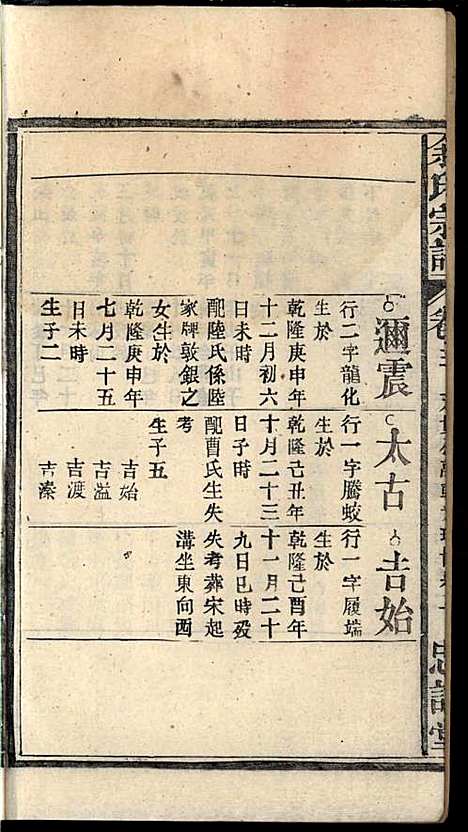 余氏宗譜
卷
邇震
行二字龍化
生於
乾隆庚申年
十二月初六
日未時
配陸氏係陸
家牌敦銀之
女生於
乾隆庚申年
七月二十五
日未時
生子二
太古
行一字騰蛟
生於
乾隆己丑年
十月二十三
日子時
配曹氏生失
考
生子五
吉始
吉溢
吉渡
吉溱
吉始
行一字履端
生於
乾隆己酉年
十一月二十
九日巳時歿
失考葬宋起
溝坐東向西